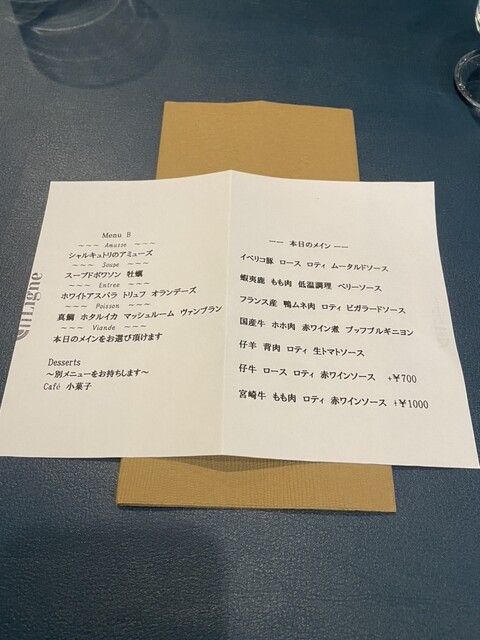 Menu B
~~~ Amusse ~~~
シャルキュトリのアミューズ
~~~ Soupe ~~~
スープドポワソン 牡蠣
~~~ Entree ~~~
ホワイトアスパラ トリュフ オランデーズ
~~~ Poisson ~~~
真鯛 ホタルイカ マッシュルーム ヴァンブラン
~~~ Viande ~~~
本日のメインをお選び頂けます
Desserts
~別メニューをお持ちします~
Café 小菓子
―― 本日のメイン ――
イベリコ豚 ロース ロティ ムータルドソース
蝦夷鹿 もも肉 低温調理 ベリーソース
フランス産 鴨ムネ肉 ロティ ビガラードソース
国産牛 ホホ肉 赤ワイン煮 ブッフブルギニヨン
仔羊 背肉 ロティ 生トマトソース
仔牛 ロース ロティ 赤ワインソース +¥700
宮崎牛 もも肉 ロティ 赤ワインソース +¥1000